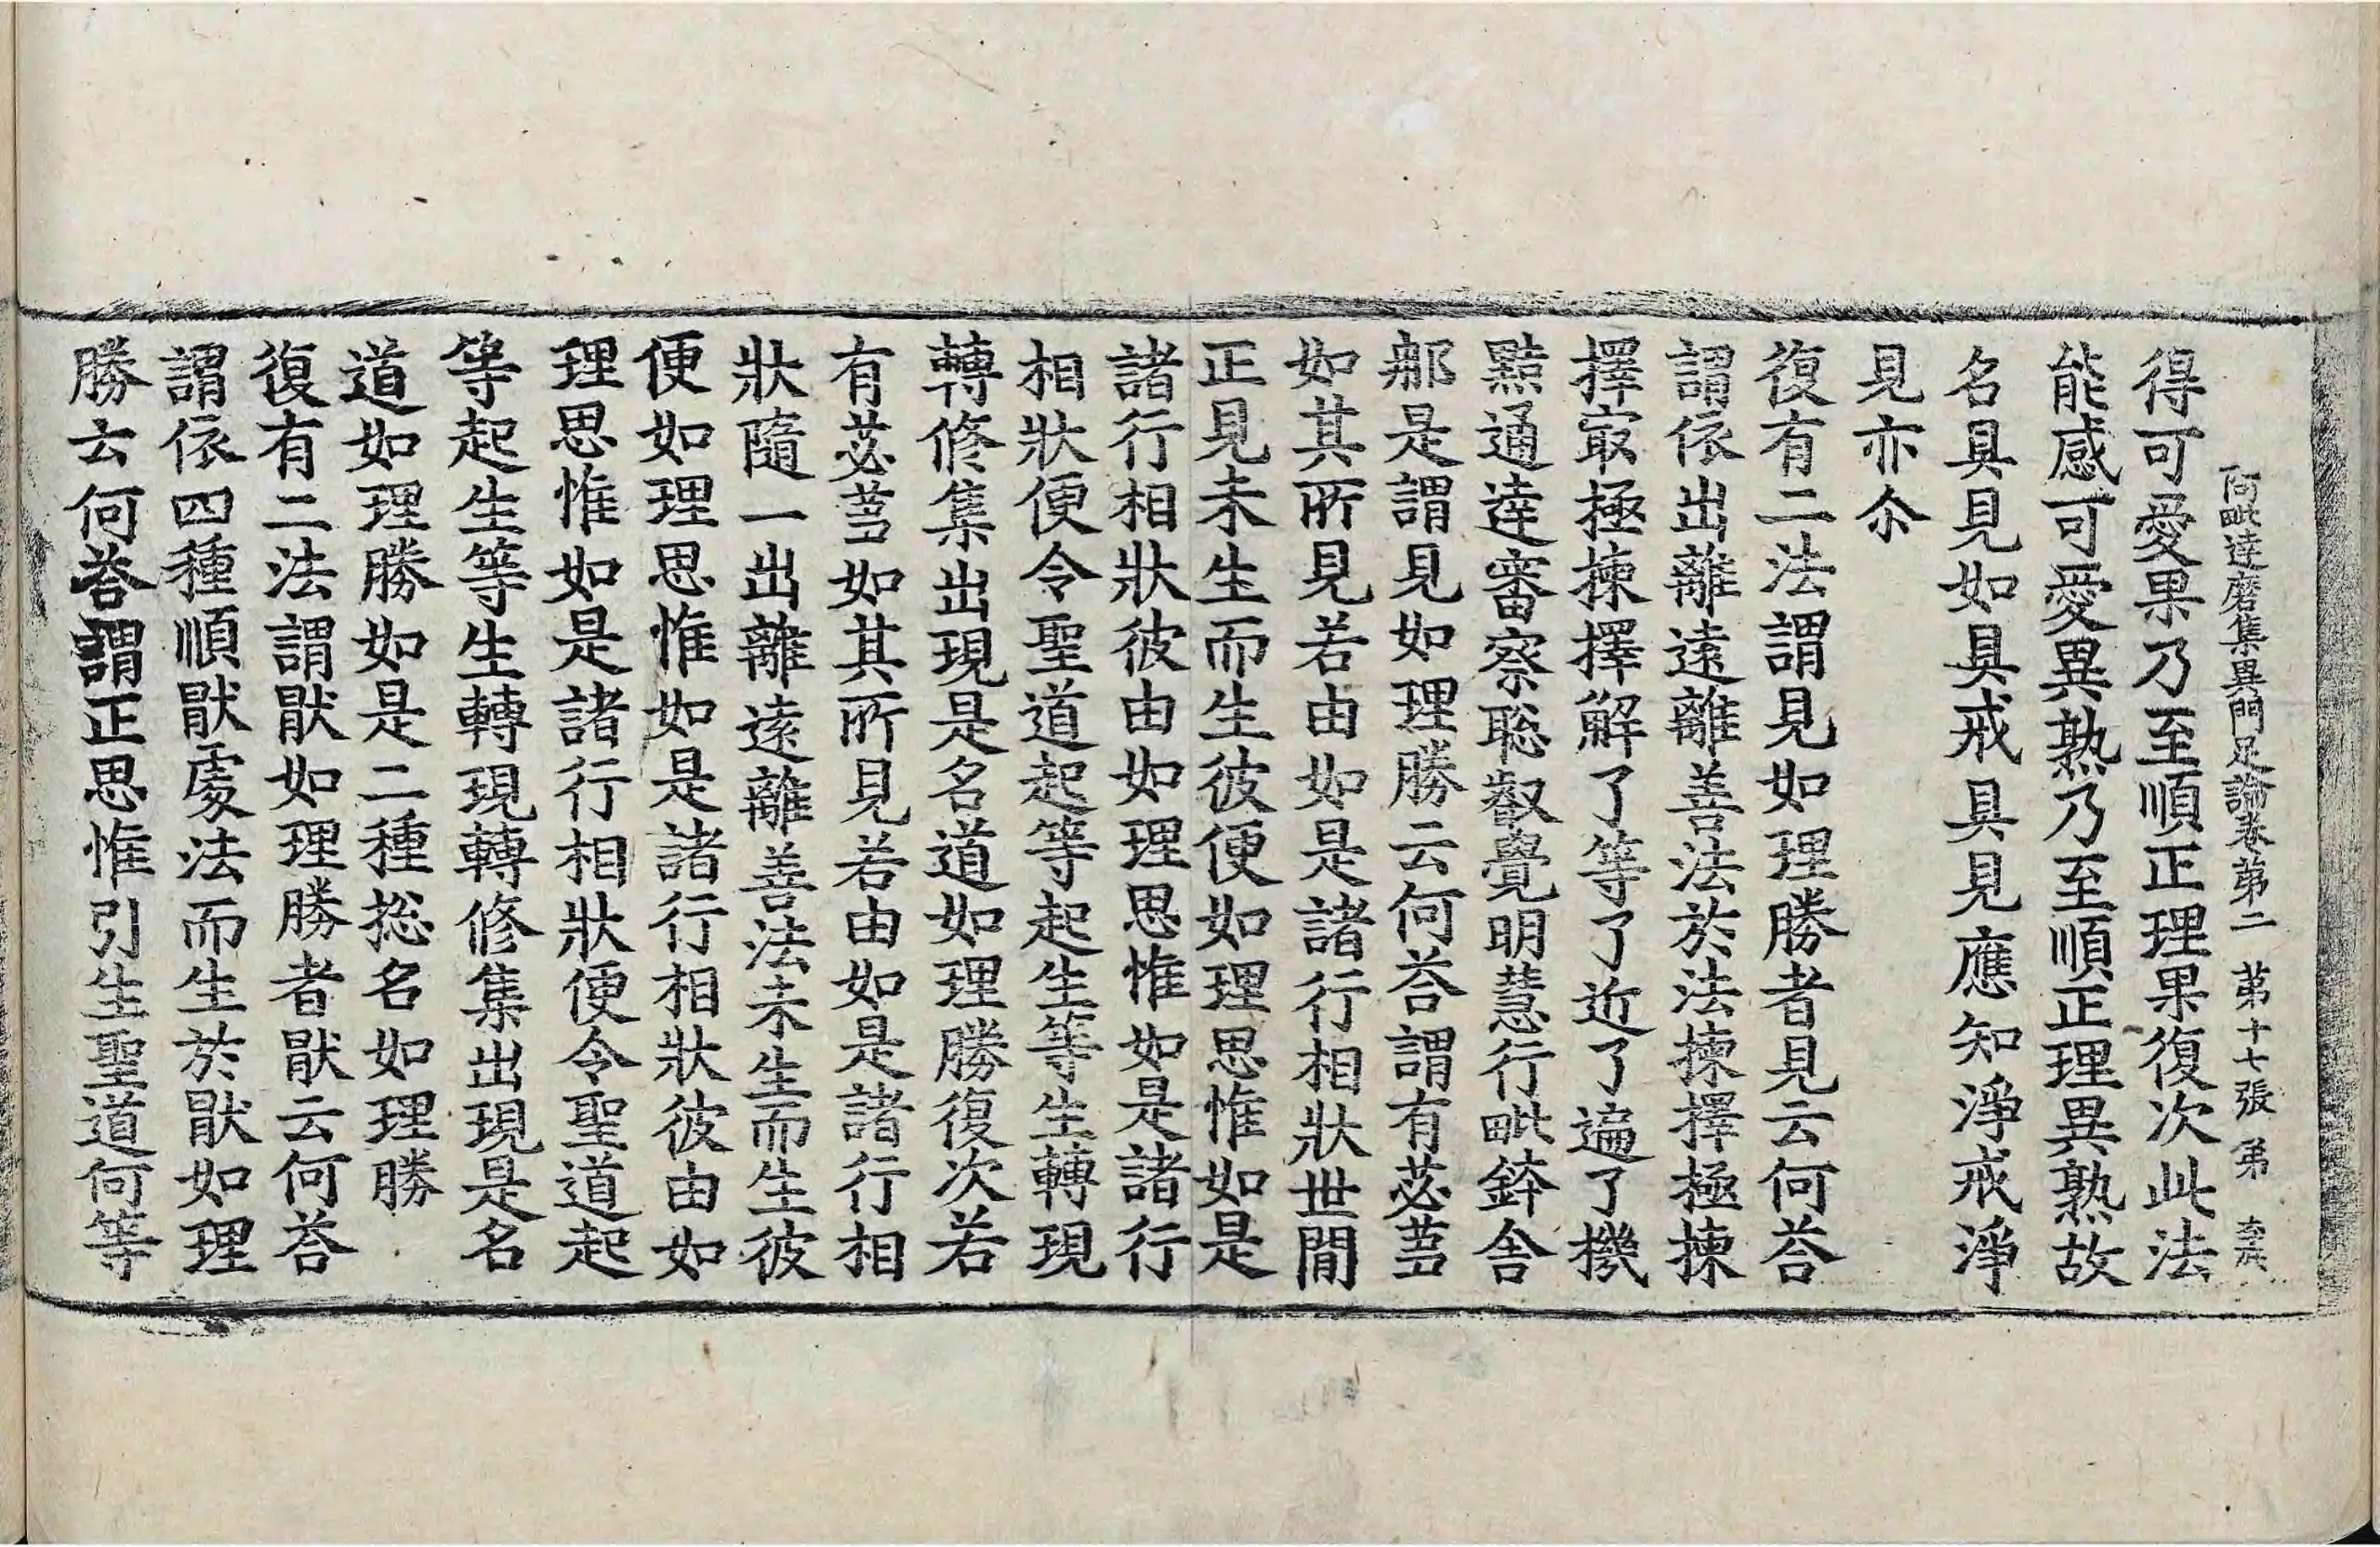 阿毗達磨集異門足論卷第二 第十七張 弟
得可愛果乃至順正理果復次此法
能感可愛異熟乃至順正理異熟故
名具見如具戒具見應知淨戒淨
見亦尒
復有二法謂見如理勝者見云何荅
謂依出離遠離善法於法揀擇極揀
擇㝡極揀擇解了等了近了遍了機
黠通達審察聡叡覺明慧行毗鉢舍
那是謂見如理勝云何荅謂有苾蒭
如其所見若由如是諸行相狀世間
正見未生而生彼便如理思惟如是
諸行相狀彼由如理思惟如是諸行
相狀便令聖道起等起生等生轉現
轉修集出現是名道如理勝復次若
有苾蒭如其所見若由如是諸行相
狀隨一出離遠離善法未生而生彼
便如理思惟如是諸行相狀彼由如
理思惟如是諸行相狀便令聖道起
等起生等生轉現轉修集出現是名
道如理勝如是二種捴名如理勝
復有二法謂猒如理勝者猒云何荅
謂依四種順猒處法而生於猒如理
勝云何荅謂正思惟引生聖道何等